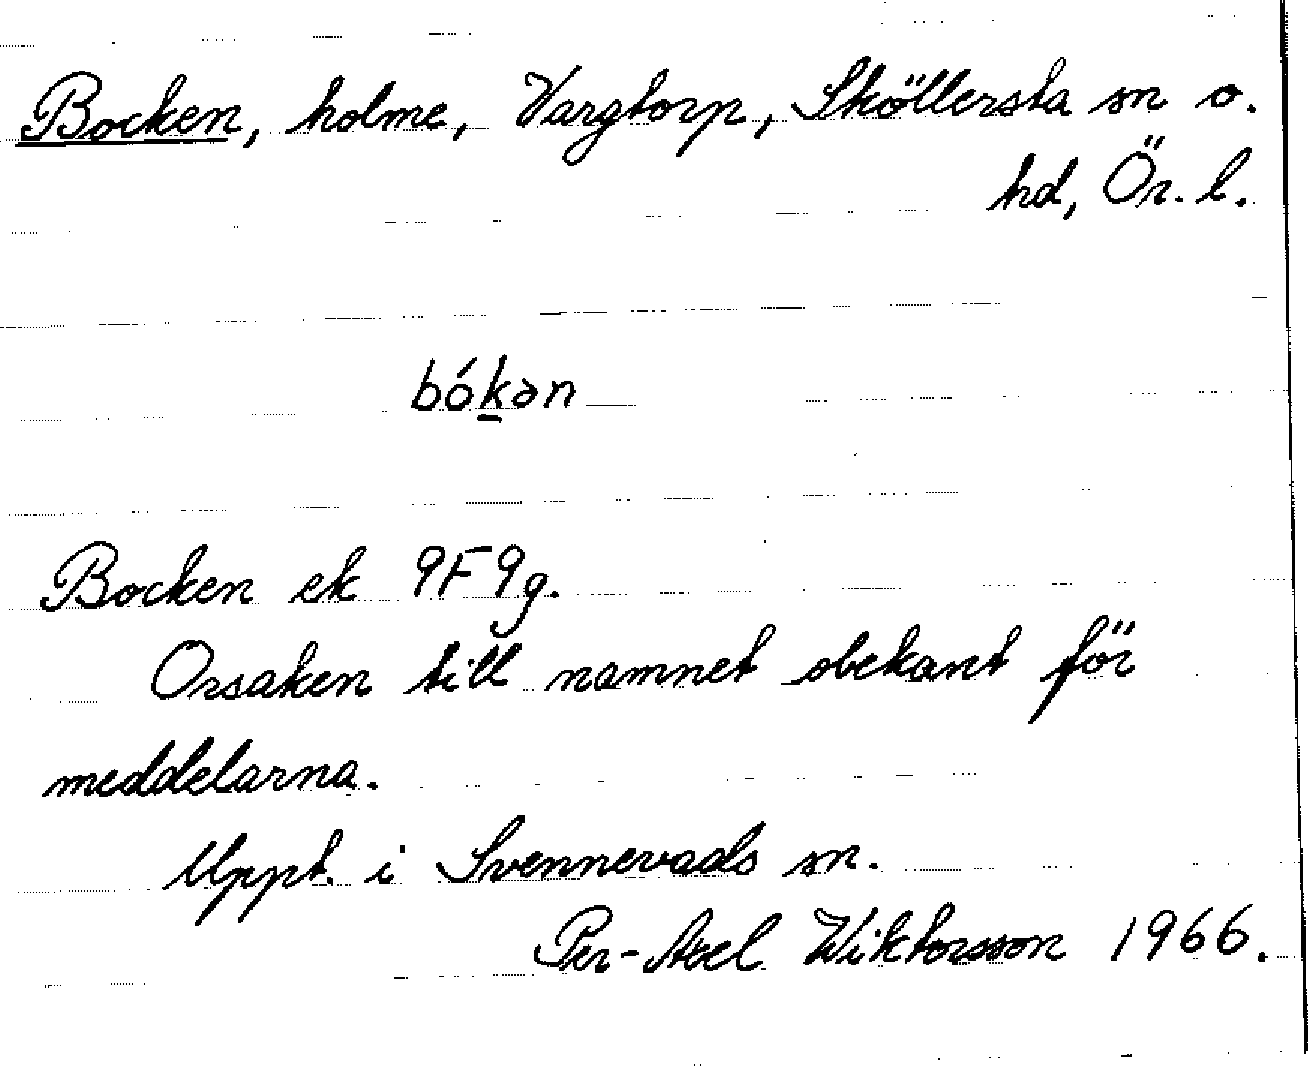 Bocken, holme, Vargtorp, Sköllersta sn o.
hd, Ör. l.
bókən
Bocken ek 9F9g.
Orsaken till namnet obekant för
meddelarna.
Uppt. i Svennevads sn.
Per-Axel Wiktorsson 1966.